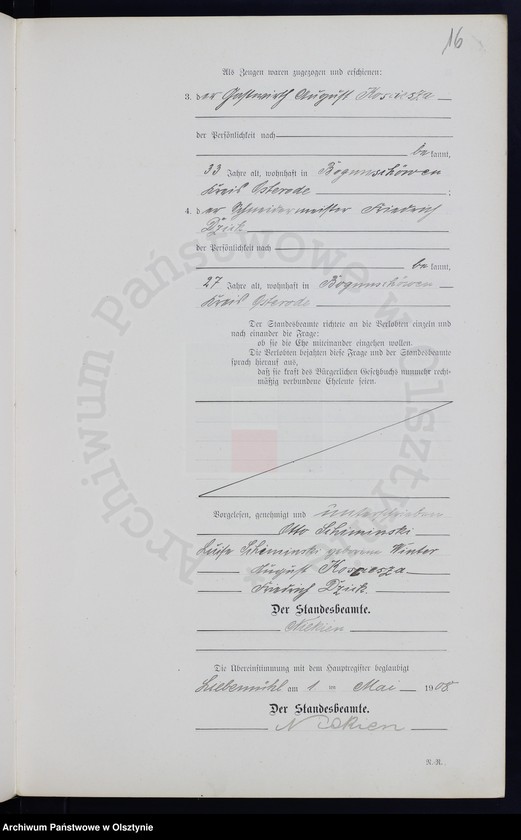 16
Als Zeugen waren zugezogen und erschienen:
3. der Gastwirth August
der Persönlichkeit nach
bekannt,
33 Jahre alt, wohnhaft in Bogunschöwen
Kreis Osterode ;
4. der Schneidermeister Friedrich
Dzick
der Persönlichkeit nach
bekannt,
27 Jahre alt, wohnhaft in Bogunschöwen
Kreis Osterode
Der Standesbeamte richtete an die Verlobten einzeln und
nach einander die Frage:
ob sie die Ehe miteinander eingehen wollen.
Die Verlobten bejahten diese Frage und der Standesbeamte
sprach hierauf aus,
daß sie kraft des Bürgerlichen Gesetzbuchs nunmehr recht-
mäßig verbundene Eheleute seien.
Vorgelesen, genehmigt und unterschrieben
Otto Schiminski
Luise Schiminski geborene Winter
August
Friedrich Dzick
Der Standesbeamte.
Die Übereinstimmung mit dem Hauptregister beglaubigt
Liebemühl am 1 ten Mai 1908
Der Standesbeamte.
N.-R.
Archiwum Państwowe w Olsztynie
Archiwum Państwowe w Olsztynie